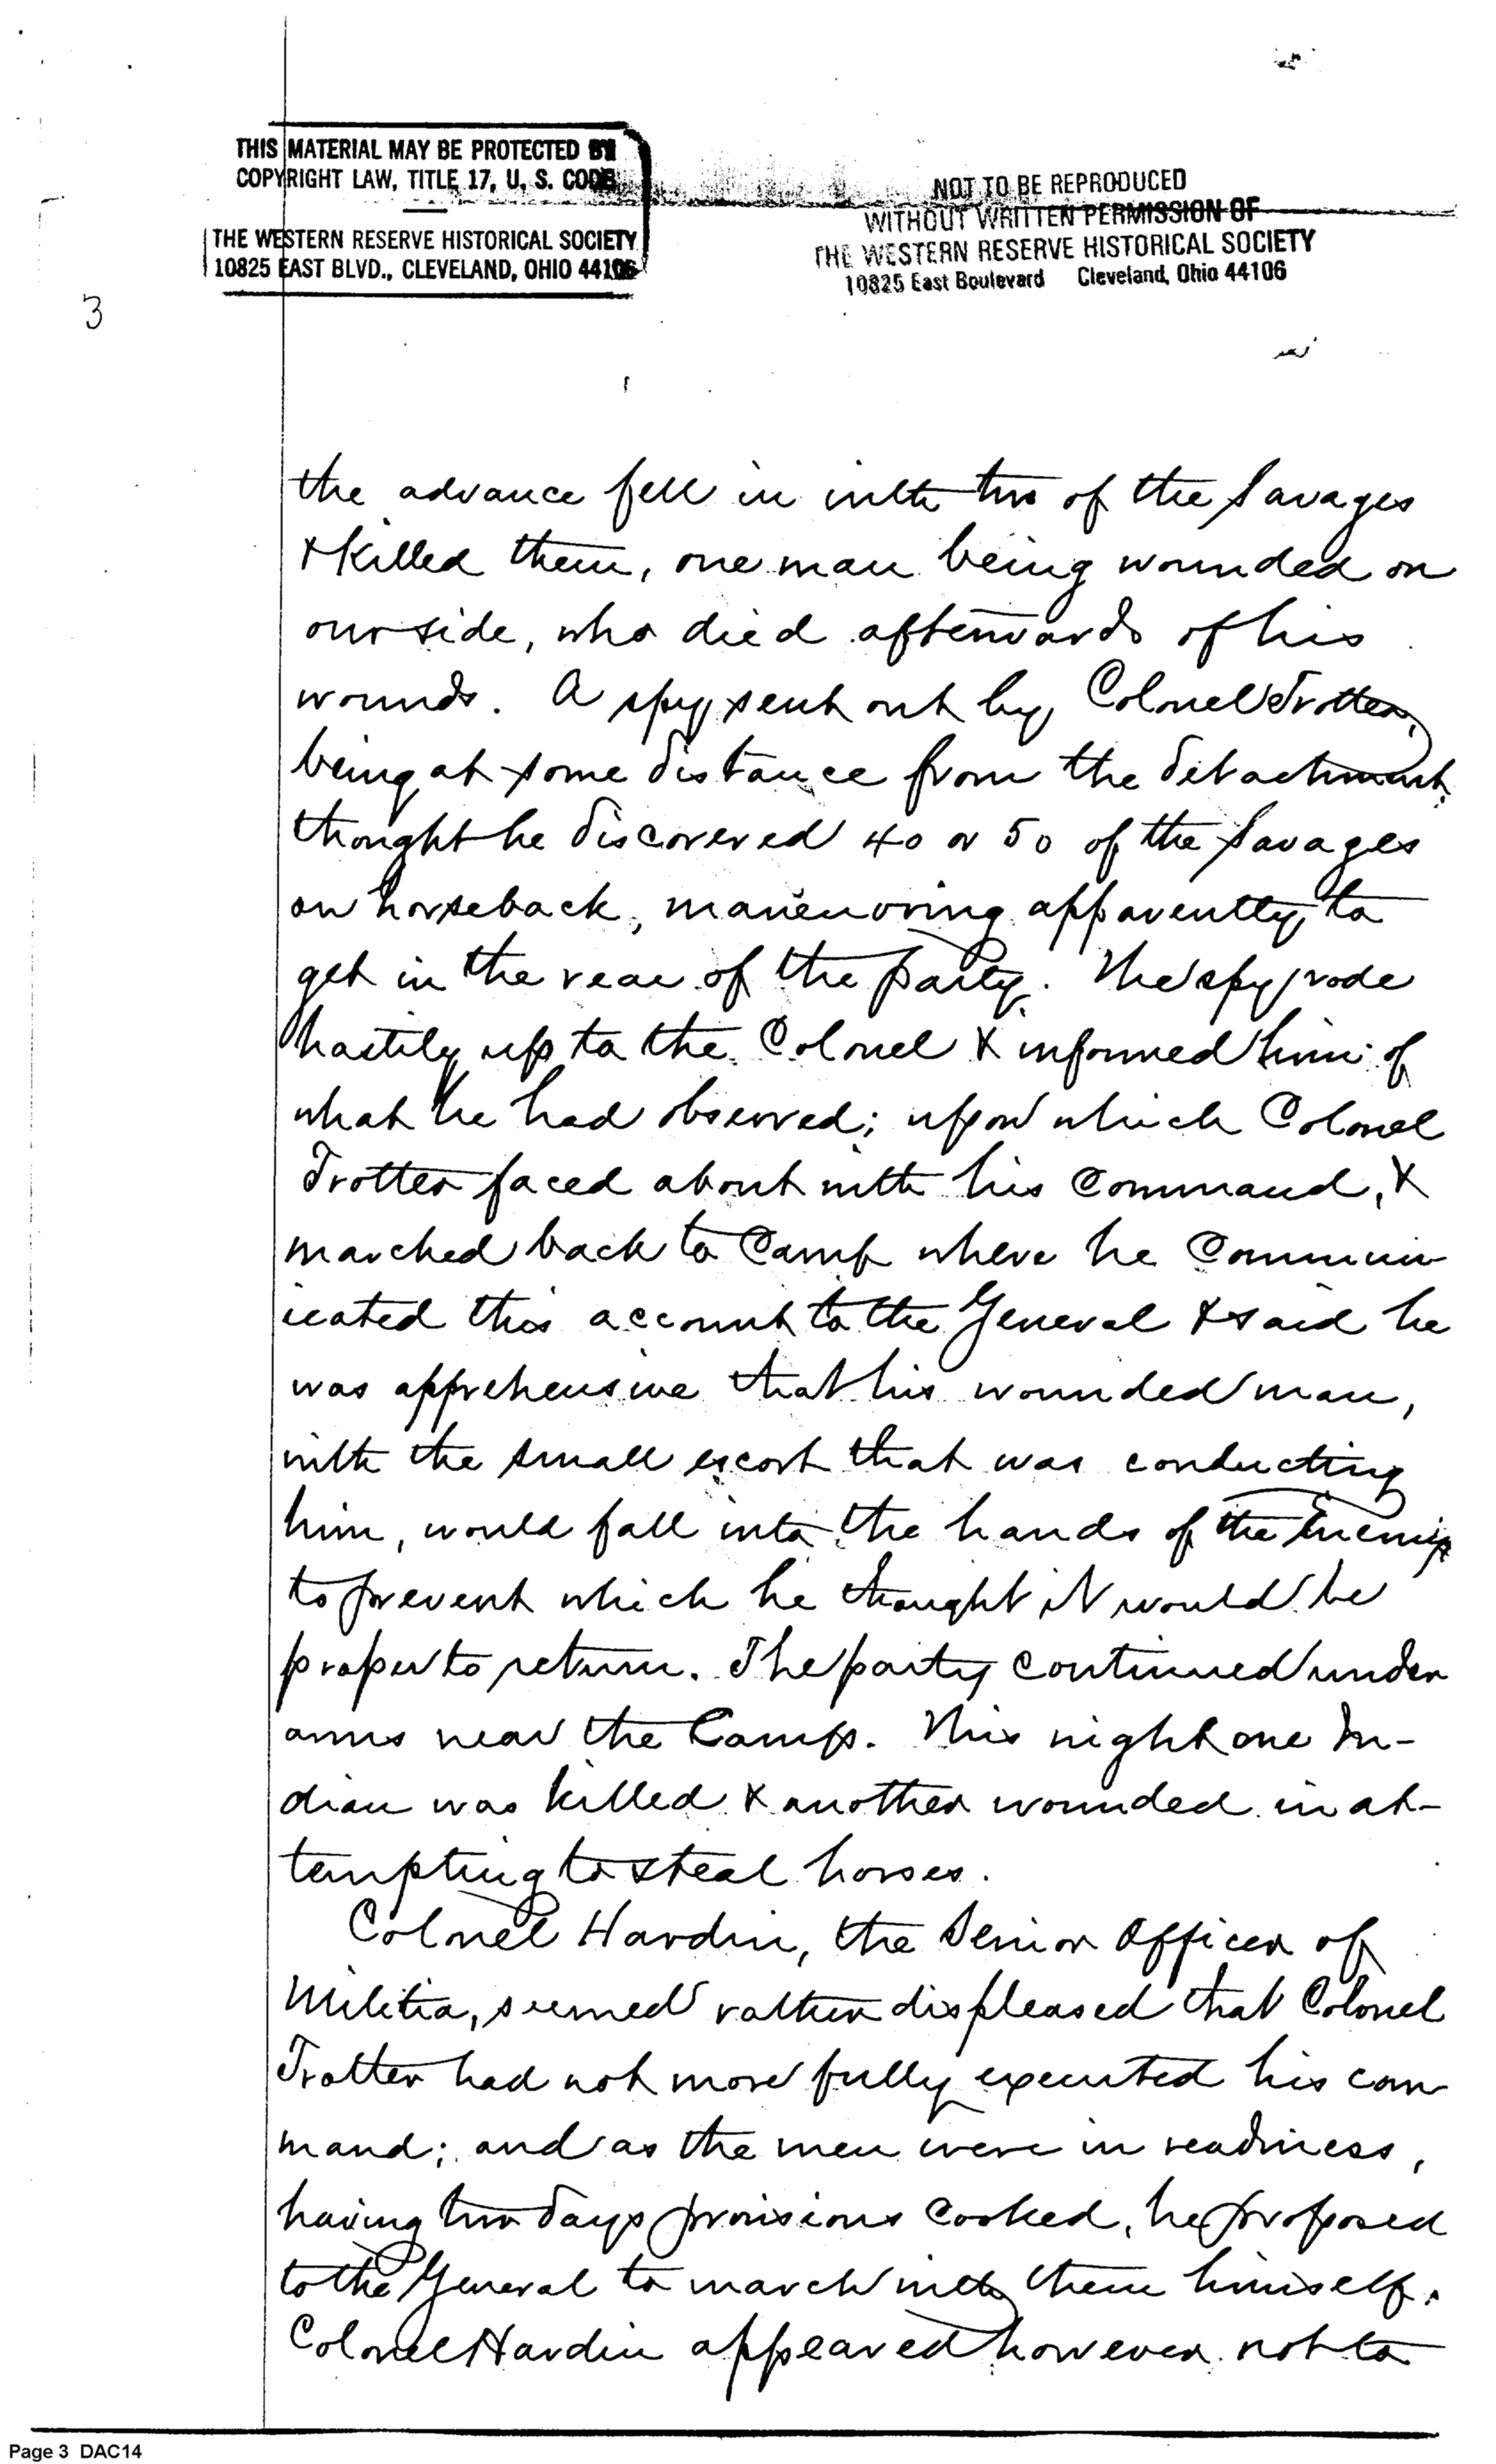 THIS MATERIAL MAY BE PROTECTED BY
COPYRIGHT LAW, TITLE 17, U. S. CODE
THE WESTERN RESERVE HISTORICAL SOCIETY
10825 EAST BLVD., CLEVELAND, OHIO 44106
NOT TO BE REPRODUCED
WITHOUT WRITTEN PERMISSION OF
THE WESTERN RESERVE HISTORICAL SOCIETY
10825 East Boulevard Cleveland, Ohio 44106
3
the advance fell in with two of the Savages
& killed them, one man being wounded on
our side, who died afterwards of his
wounds. A spy sent out by Colonel Trotter,
being at some distance from the detachment,
thought he discovered 40 or 50 of the Savages
on horseback, maneuvring apparently to
get in the rear of the party. The spy rode
hastily up to the Colonel & informed him of
what he had observed; upon which Colonel
Trotter faced about with his Command, &
marched back to Camp where he Commun-
icated this account to the General & said he
was apprehensive that his wounded man,
with the small escort that was conducting
him, would fall into the hands of the Enemy,
to prevent which he thought it would be
proper to return. The party continued under
arms near the Camp. This night one In-
dian was killed & another wounded in at-
tempting to steal horses.
Colonel Hardin, the Senior Officer of
Militia, seemed rather displeased that Colonel
Trotter had not more fully executed his com-
mand; and as the men were in readiness,
having two days provisions cooked, he proposed
to the General to march with them himself.
Colonel Hardin appeared however not to
Page 3 DAC14